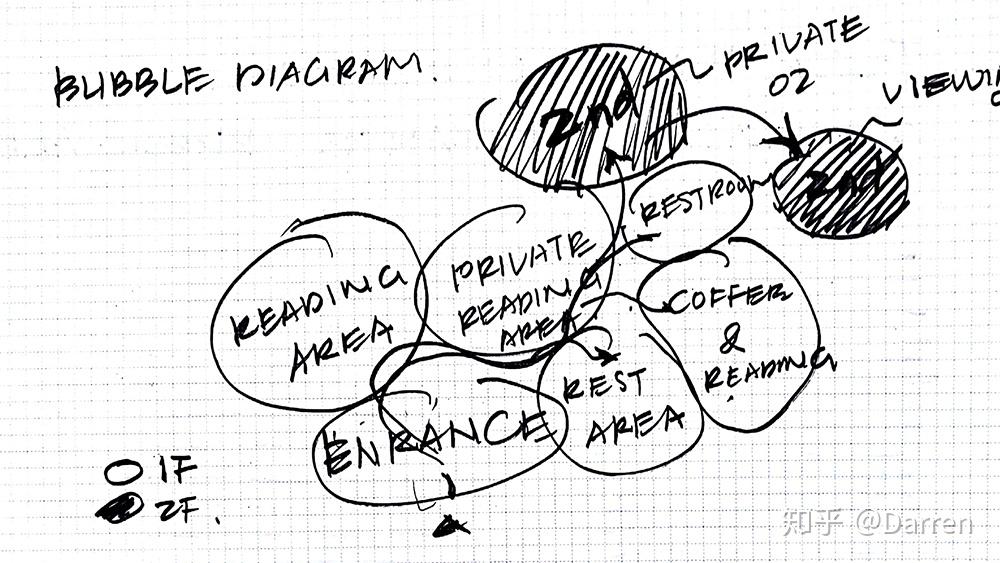 BUBBLE DIAGRAM.
2nd
PRIVATE
02
2nd
RESTROOM
READING
AREA
PRIVATE
READING
AREA
COFFER
&
READING
REST
AREA
ENRANCE
1F
2F.
知乎 @Darren